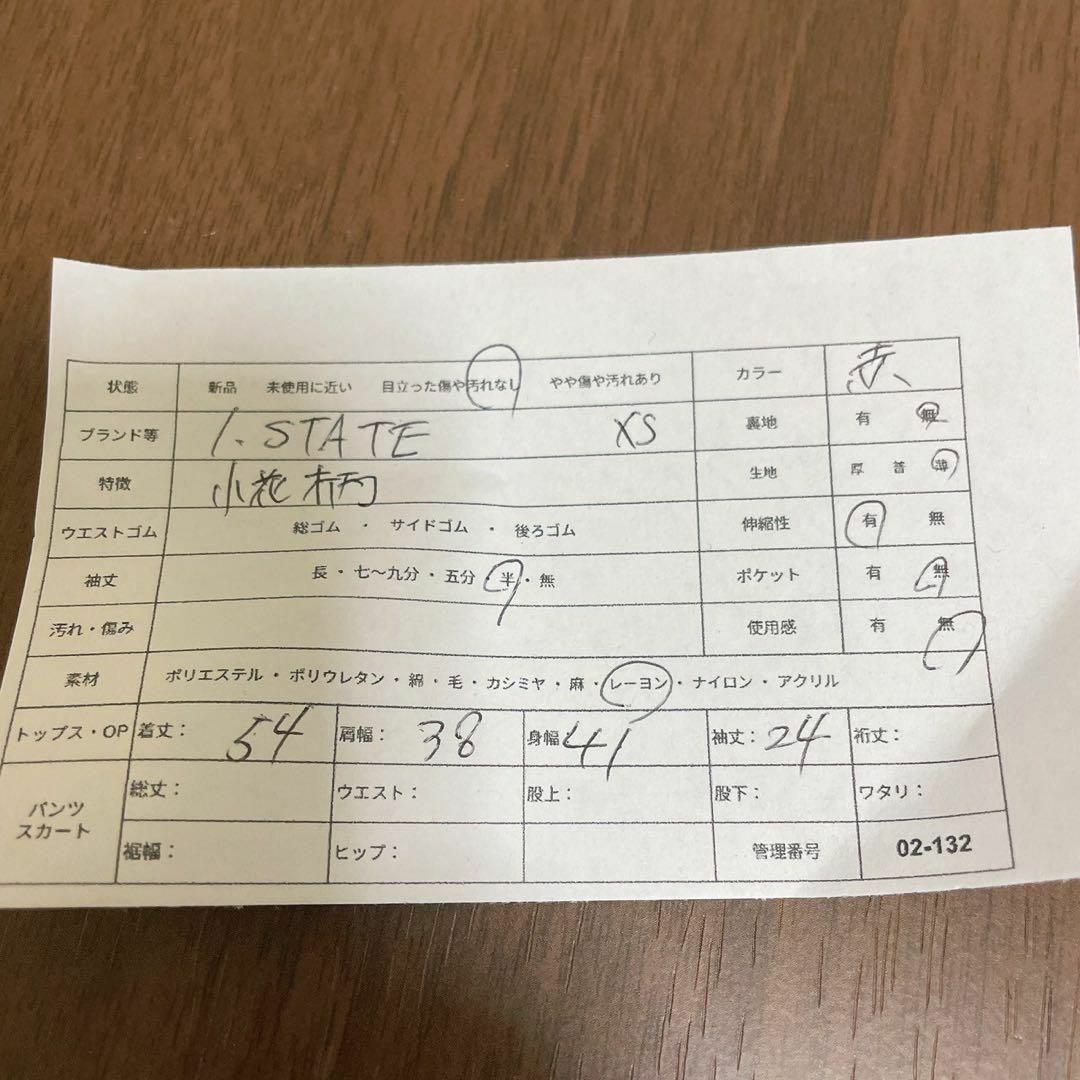 状態 新品 未使用に近い 目立った傷や汚れなし やや傷や汚れあり カラー 赤
ブランド等 1.STATE XS 裏地 有 無
特徴 小花柄 生地 厚 普 薄
ウエストゴム 総ゴム・サイドゴム・後ろゴム 伸縮性 有 無
袖丈 長・七〜九分・五分・半・無 ポケット 有 無
汚れ・傷み 使用感 有 無
素材 ポリエステル・ポリウレタン・綿・毛・カシミヤ・麻・レーヨン・ナイロン・アクリル
トップス・OP 着丈: 54 肩幅: 38 身幅 41 袖丈: 24 裄丈:
パンツ
スカート
総丈: ウエスト: 股上: 股下: ワタリ:
裾幅: ヒップ: 管理番号 02-132